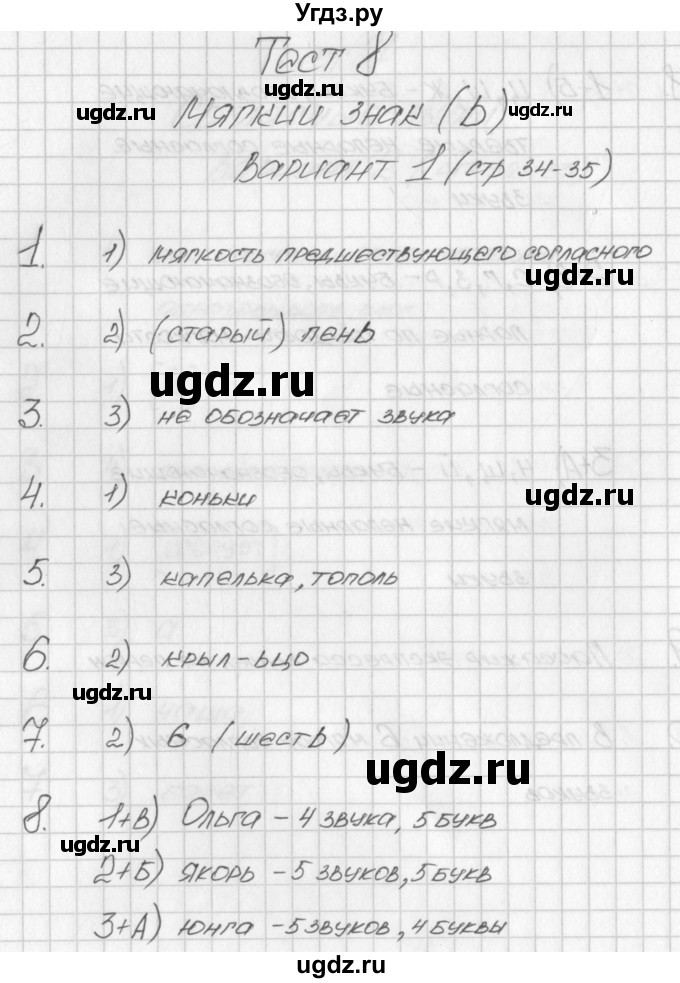 Угдз.ру
Тест 8
ugdz.ru
ugdz.ru Мягкий знак (ь) ugdz.ru
Вариант 1 (стр 34-35)
1. 1) мягкость предшествующего согласного
ugdz.ru
2. 2) (старый) пень
ugdz.ru
3. 3) не обозначает звука
4. 1) коньки ugdz.ru
5. 3) капелька, тополь
6. 2) крыл-ьцо
ugdz.ru
7. 2) 6 (шесть)
ugdz.ru
8. 1+В) Ольга - 4 звука, 5 букв
ugdz.ru
2+Б) якорь - 5 звуков, 5 букв
3+А) юнга - 5 звуков, 4 буквы
ugdz.ru
ugdz.ru